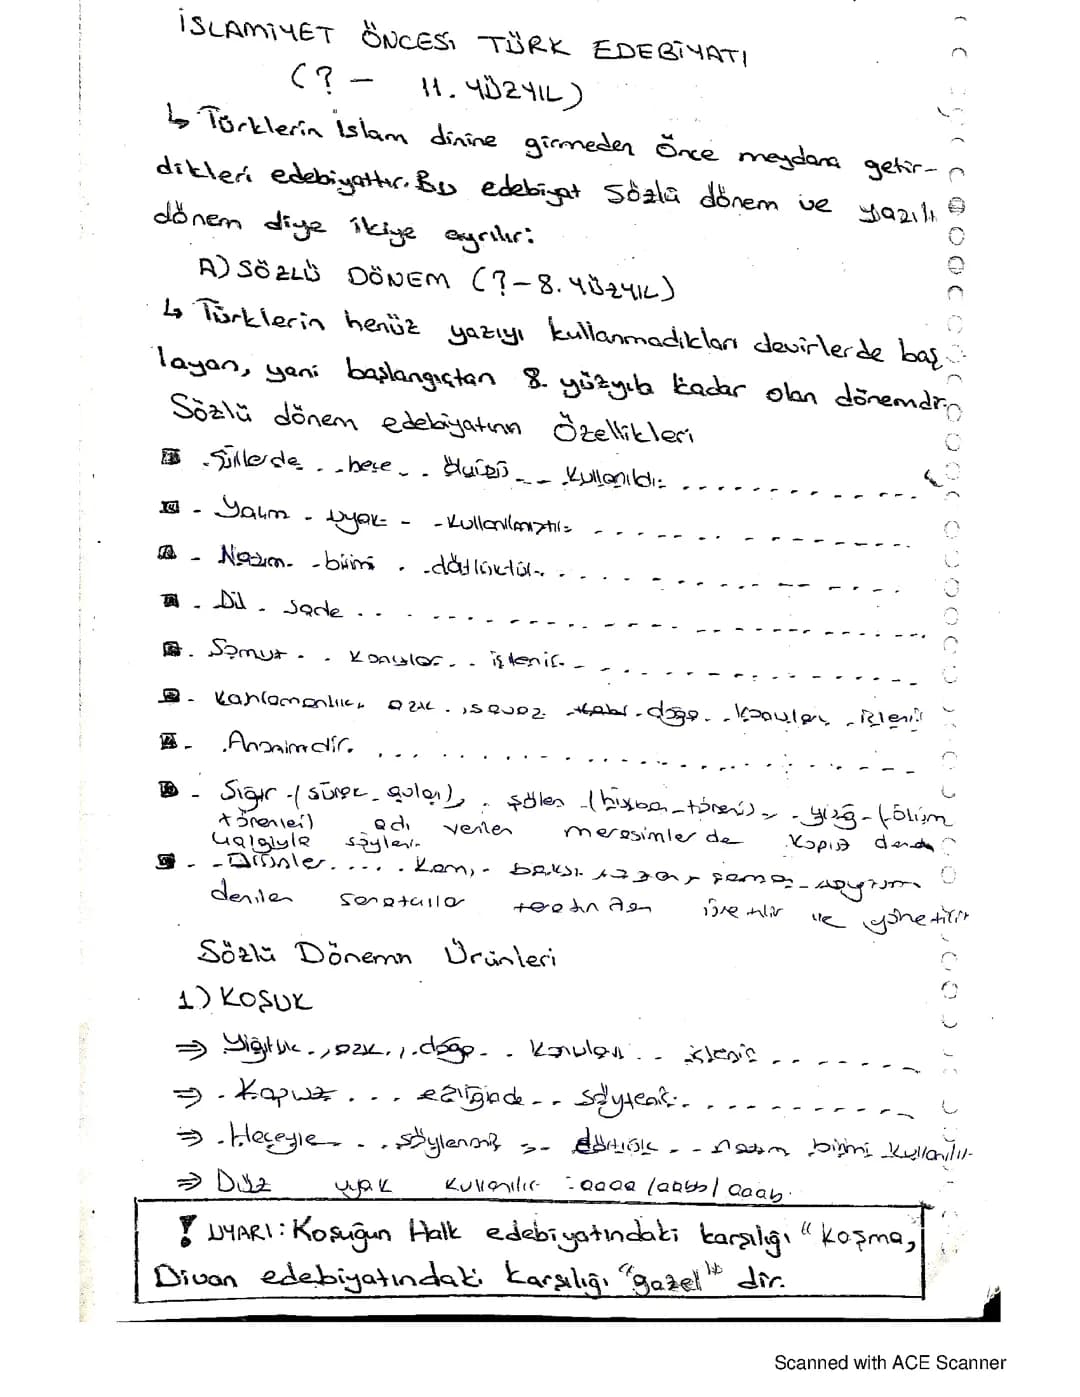 İSLAMİYET ÖNCESİ TÜRK EDEBİYATI
(? - 11. YÜZYIL)
↳ Türklerin İslam dinine girmeden Önce meydana getir-
dikleri edebiyattır. Bu edebiyat sözlü dönem ve yazılı
dönem diye ikiye ayrılır:
A) SÖZLÜ DÖNEM (?-8. YÜZYIL)
↳ Türklerin henüz yazıyı kullanmadıkları devirlerde baş
layan, yani başlangıçtan 8. yüzyıla kadar olan dönemdir.
Sözlü dönem edebiyatının Özellikleri
Şiirlerde hece ölçüsü kullanıldı.
Yarım uyak kullanılmıştır.
Nazım birimi dörtlüktür.
Dil sade
Somut konular işlenir.
Kahramanlık, aşk, savaş doğa konuları işlenir
Anonimdir.
Sığır (sürek avları), şölen (kurban töreni), yuğ (ölüm
törenleri) adı verilen merasimlerde Kopuz denen
çalgıyla söylenir.
Destanlar Kam, baksı, ozan, şaman
denilen sanatçılar tarafından üretilir ve yönetilir
Sözlü Dönemin Ürünleri
1) KOŞUK
⇒ Yiğitlik, aşk, doğa konuları işlenir
⇒ Kopuz eşliğinde söylenir.
⇒ Heceyle söylenmiş dörtlük nazım birimi kullanılır.
⇒ Düz uyak kullanılır: aaaa/aabb/aaab.
! UYARI: Koşuğun Halk edebiyatındaki karşılığı "koşma,
Divan edebiyatındaki karşılığı "gazel" dir.
Scanned with ACE Scanner